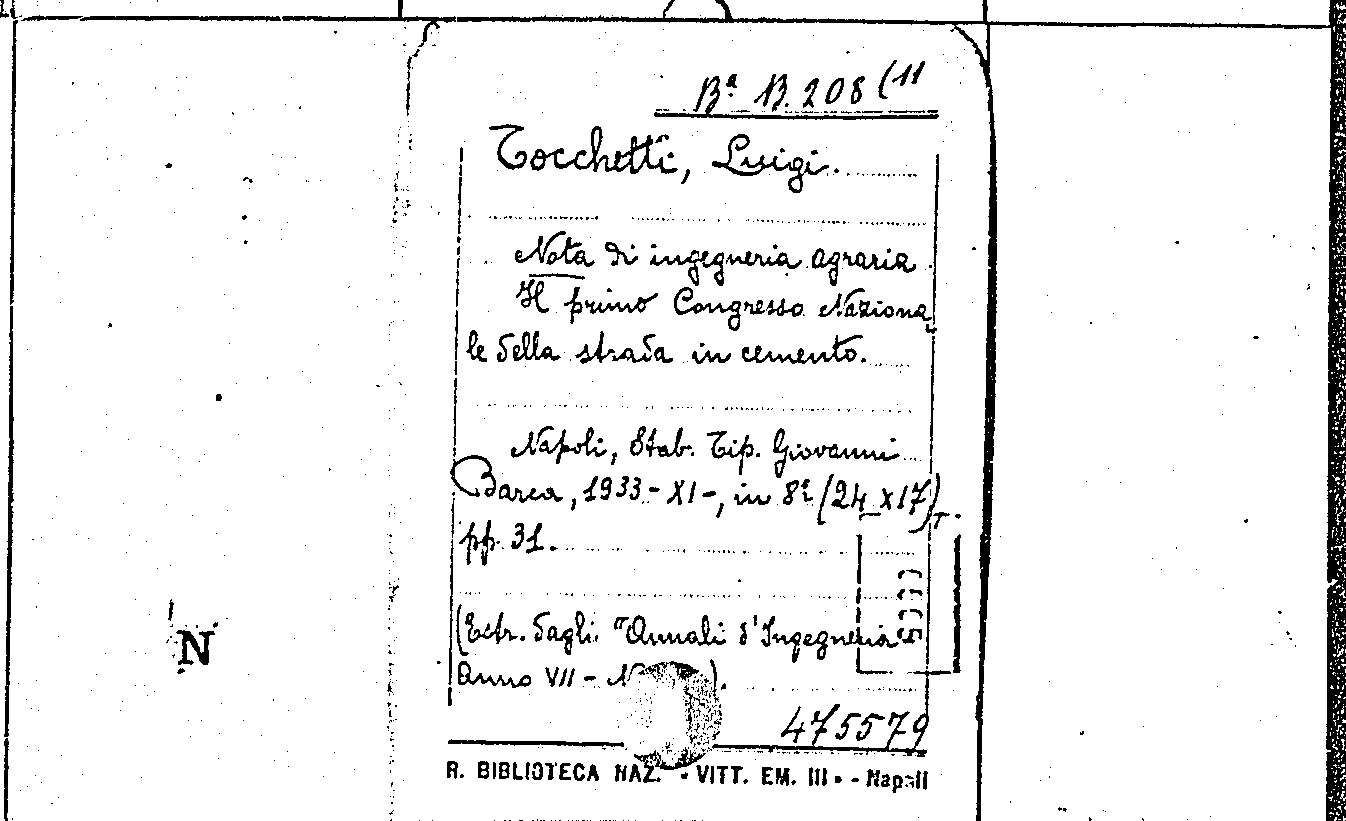 Bª B. 208 (11
Tocchetti, Luigi.
Nota di ingegneria agraria
Il primo Congresso Naziona
le della strada in cemento.
Napoli, Stab. Tip. Giovanni
Barca, 1933 - XI -, in 8º (24 x 17)
pp. 31.
(Estr. dagli "Annali d'Ingegneria"
Anno VII - N ).
475579
R. BIBLIOTECA NAZ. " VITT. EM. III " - Napoli
N